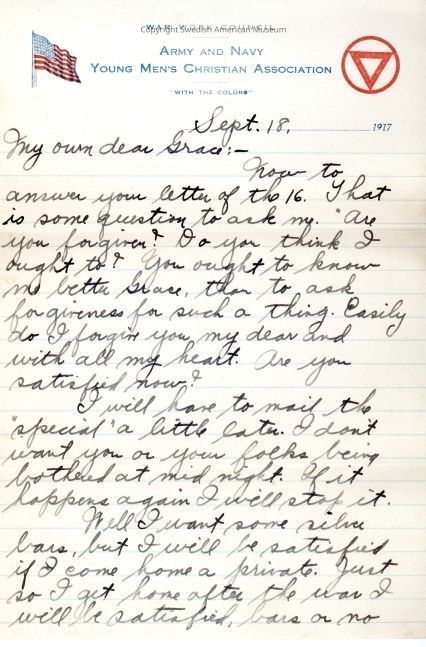 WAR WORK COUNCIL
Copyright Swedish American Museum
ARMY AND NAVY
YOUNG MEN'S CHRISTIAN ASSOCIATION
"WITH THE COLORS"
Sept. 18, 1917
My own dear Grace:-
Now to
answer your letter of the 16. That
is some question to ask me. "Are
you forgiven? Do you think I
ought to? You ought to know
me better Grace, than to ask
forgiveness for such a thing. Easily
do I forgive you, my dear and
with all my heart. Are you
satisfied now?
I will have to mail the
"special" a little later. I don't
want you or your folks being
bothered at mid night. If it
happens again I will stop it.
Well I want some silver
bars, but I will be satisfied
if I come home a private. Just
so I get home after the war I
will be satisfied, bars or no